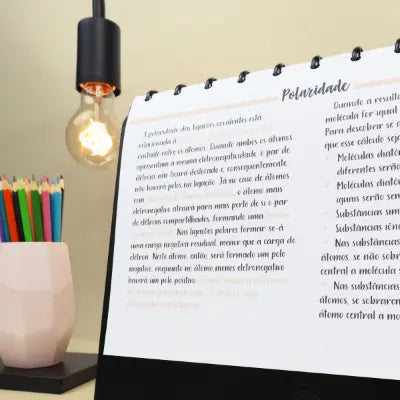 Polaridade
A polaridade das ligações covalentes está
relacionada à
existente entre os átomos. Quando ambos os átomos
apresentam a mesma eletronegatividade, o par de
elétrons não ficará deslocado e, consequentemente,
não haverá polos na ligação. Já no caso de átomos
com o átomo mais
eletronegativo atrairá para mais perto de si o par
de elétrons compartilhados, formando uma
Nas ligações polares formar-se-á
uma carga negativa residual, menor que a carga do
elétron. Neste átomo, então, será formado um polo
negativo, enquanto no átomo menos eletronegativo
haverá um polo positivo.
Quando a result
molécula for igual
Para descobrir se a
que esse cálculo sej
Moléculas diatôm
diferentes serão
Moléculas diatôm
iguais serão sem
Substâncias sim
Substâncias iôn
Nas substâncias
átomos, se não sobr
central a molécula s
Nas substâncias
átomos, se sobrarem
átomo central a mo